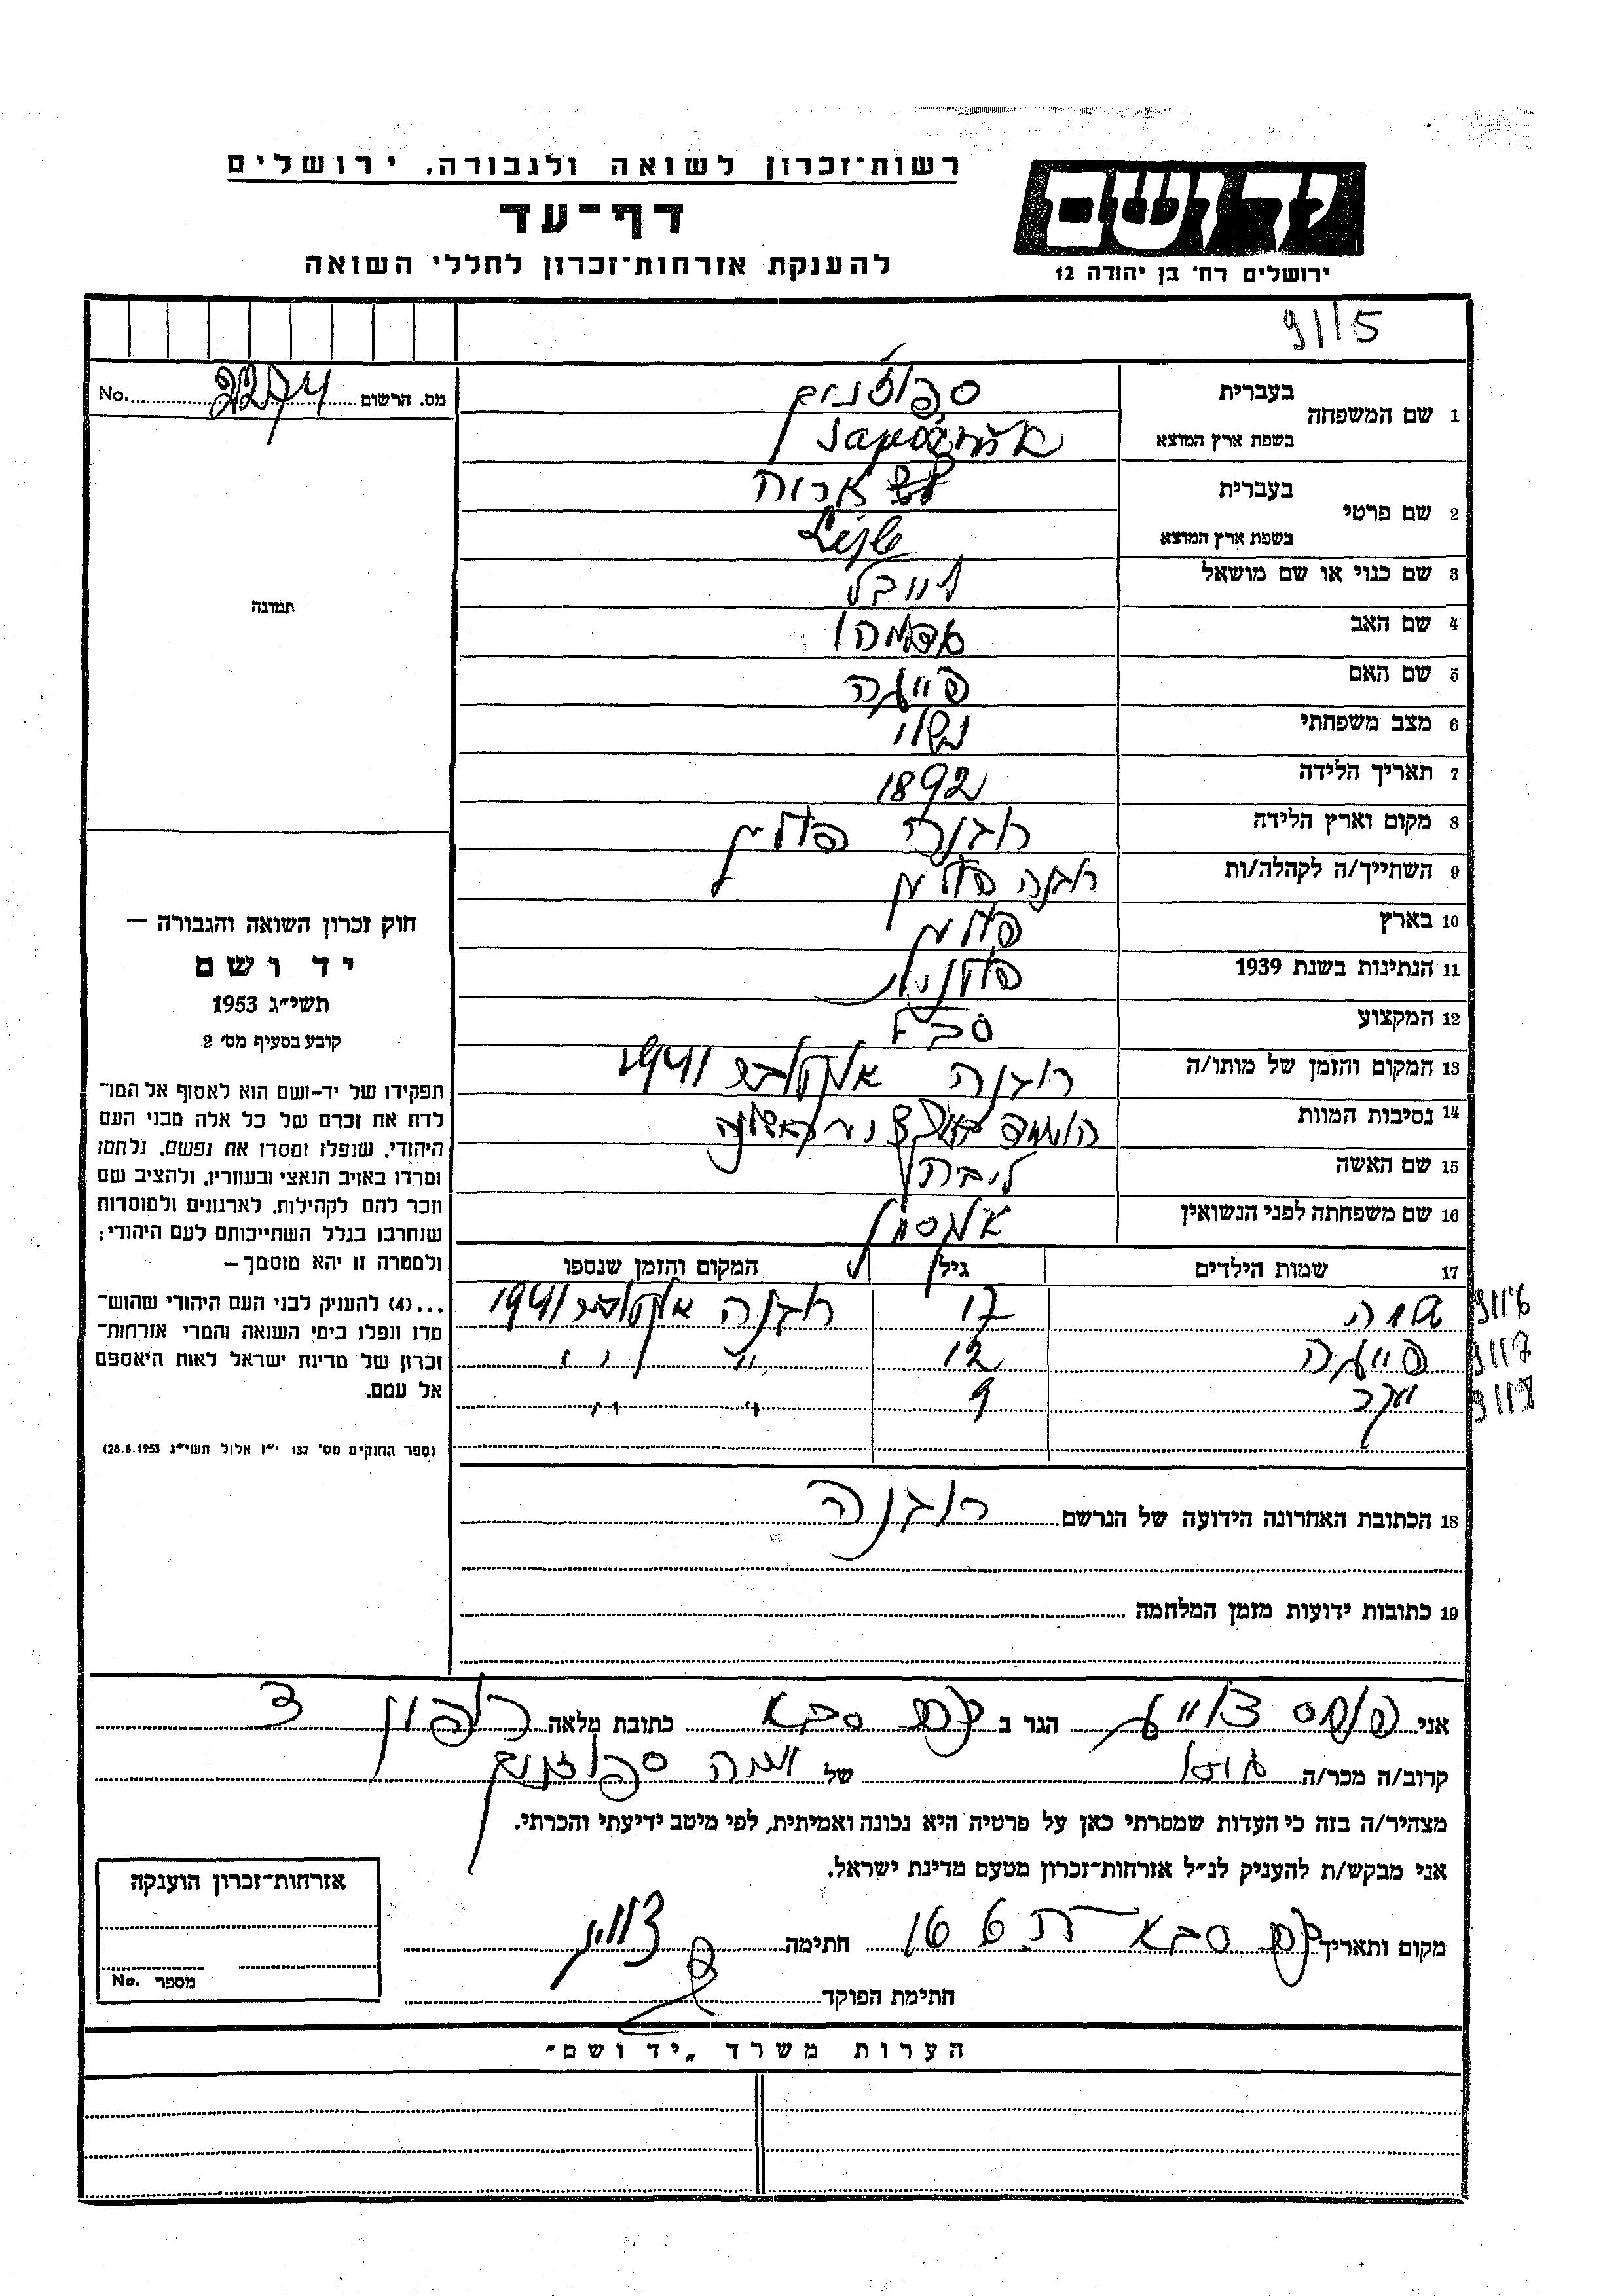 רשות־זכרון לשואה ולגבורה, ירושלים
דף־עד
להענקת אזרחות־זכרון לחללי השואה
יד ושם
ירושלים רח' בן יהודה 12
9115
מס. הרשום 2274 No.
1 שם המשפחה
בעברית ספוזניק
בשפת ארץ המוצא
2 שם פרטי
בעברית אריה
בשפת ארץ המוצא
3 שם כנוי או שם מושאל לייבל
4 שם האב
5 שם האם פייגה
6 מצב משפחתי נשוי
7 תאריך הלידה 1892
8 מקום וארץ הלידה רובנה פולין
9 השתייך/ה לקהלה/ות רובנה פולין
10 בארץ פולין
11 הנתינות בשנת 1939 פולנית
12 המקצוע סבל
13 המקום והזמן של מותו/ה רובנה אוקטובר 1941
14 נסיבות המוות
15 שם האשה ליבה
16 שם משפחתה לפני הנשואין
17 שמות הילדים גיל המקום והזמן שנספו
שרה 17 רובנה אוקטובר 1941 9116
פייגה 12 " " 9117
יעקב 9 " " 9118
18 הכתובת האחרונה הידועה של הנרשם רובנה
19 כתובות ידועות מזמן המלחמה
תמונה
חוק זכרון השואה והגבורה —
יד ושם
תשי״ג 1953
קובע בסעיף מס' 2
תפקידו של יד-ושם הוא לאסוף אל המו־
לדת את זכרם של כל אלה מבני העם
היהודי, שנפלו ומסרו את נפשם, נלחמו
ומרדו באויב הנאצי ובעוזריו, ולהציב שם
וזכר להם לקהילות, לארגונים ולמוסדות
שנחרבו בגלל השתייכותם לעם היהודי;
ולמטרה זו יהא מוסמך —
...(4) להעניק לבני העם היהודי שהוש־
מדו ונפלו בימי השואה והמרי אזרחות־
זכרון של מדינת ישראל לאות היאספם
אל עמם.
(ספר החוקים מס' 132 י״ז אלול תשי״ג 28.8.1953)
אני הגר ב כפר סבא כתובת מלאה
קרוב/ה מכר/ה של ספוזניק
מצהיר/ה בזה כי העדות שמסרתי כאן על פרטיה היא נכונה ואמיתית, לפי מיטב ידיעתי והכרתי.
אני מבקש/ת להענקת לנ״ל אזרחות־זכרון מטעם מדינת ישראל.
מקום ותאריך כפר סבא חתימה
חתימת הפוקד
אזרחות־זכרון הוענקה
מספר No.
הערות משרד „יד ושם״